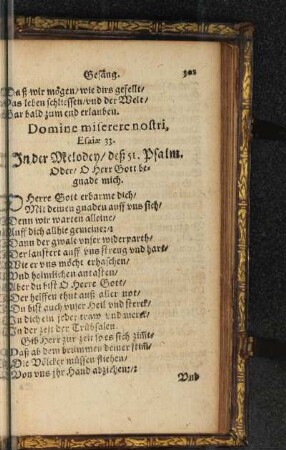 Gesäng. 302
Daß wir mögen/ wie dirs gefellt/
Das leben schliessen/ vnd der Welt/
Gar bald zum end erlauben.
Domine miserere nostri,
Esaiæ 33.
In der Melodey/ deß 51. Psalm.
Oder/ O Herr Gott be-
gnade mich.
O Herre Gott erbarme dich/
Mit deinen gnaden auff vns sich/
Denn wir warten alleine/
Auff dich allhie gemeine:/:
Dann der gwalt vnser widerparth/
Der laufft auff vns streng vnd hart/
Wie er vns möcht erhaschen/
Vnd heimlichen antasten/
Aber du bist O Herre Gott/
Der helffen thut auß aller not/
Du bist auch vnser Heil vnd sterck/
In dich ein jeder traw vnd merck/
In der zeit der Trübsalen.
Gib Herr zur zeit so es sich zimt/
Daß ab dem brummen deiner stim/
Die Völcker müssen fliehen/
Von vns jhr Hand abziehen:/:
Vnd